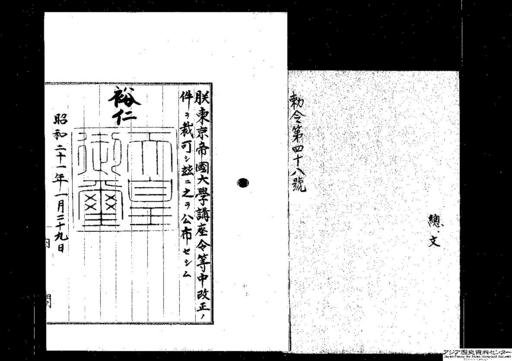 勅令第四十八號
總、文
朕東京帝國大學講座令等中改正ノ
件ヲ裁可シ玆ニ之ヲ公布セシム
裕仁
天皇御璽
昭和二十一年一月二十九日
アジア歴史資料センター